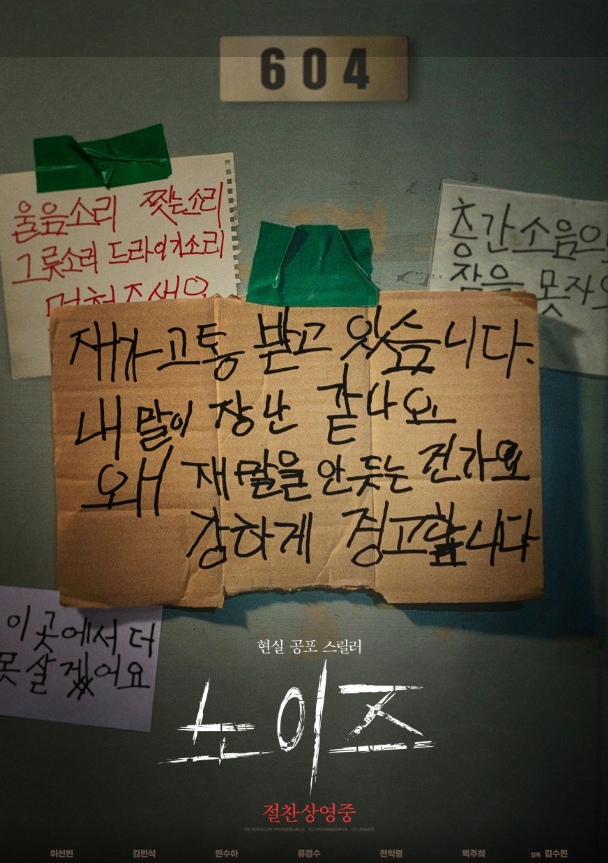 604
울음소리 찢는소리
그릇소리 드라이기소리
멈춰주세요
층간소음
잠을 못자
재가 고통 받고 있습니다.
내 말이 장난 같나요
왜 재 말을 안듯는 건가요
강하게 경고합니다
이곳에서 더
못살겠어요
현실 공포 스릴러
노이즈
절찬상영중
이선빈 김민석 한수아 류경수 전익령 백주희 감독 김수진